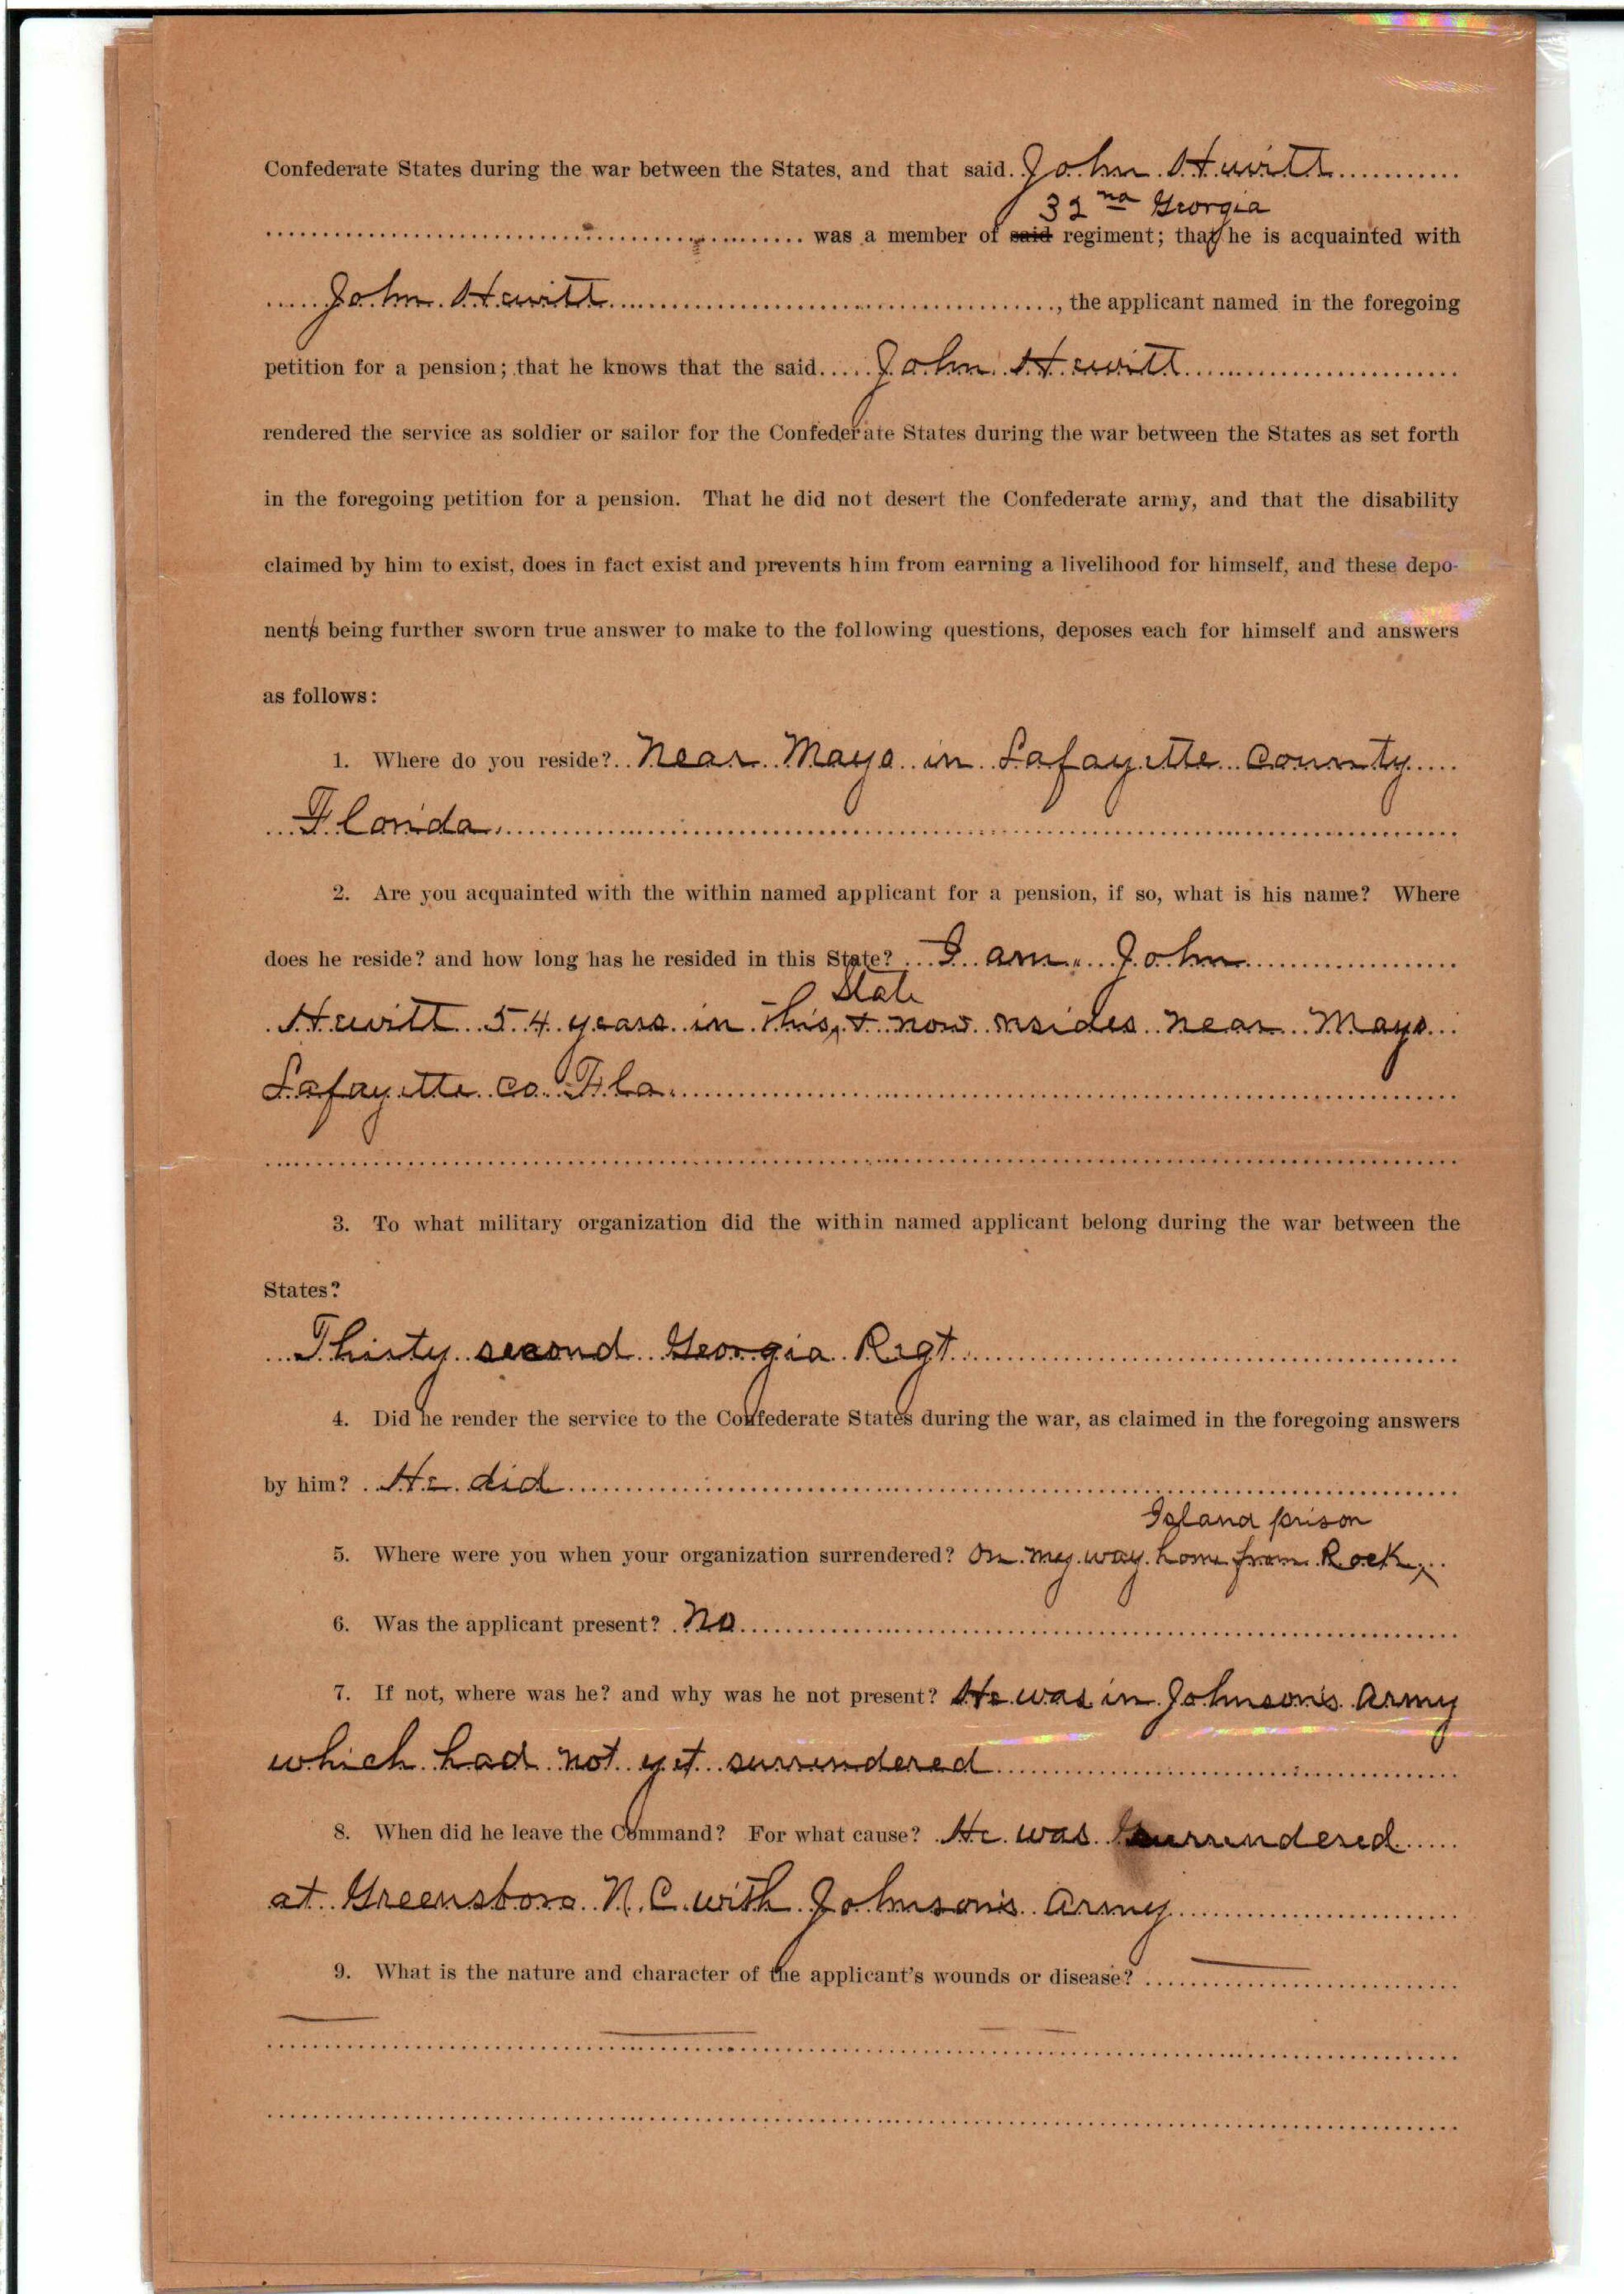 Confederate States during the war between the States, and that said John Hewitt
32nd Georgia
was a member of said regiment; that he is acquainted with
John Hewitt, the applicant named in the foregoing
petition for a pension; that he knows that the said John Hewitt
rendered the service as soldier or sailor for the Confederate States during the war between the States as set forth
in the foregoing petition for a pension. That he did not desert the Confederate army, and that the disability
claimed by him to exist, does in fact exist and prevents him from earning a livelihood for himself, and these depo-
nents being further sworn true answer to make to the following questions, deposes each for himself and answers
as follows:
1. Where do you reside? Near Mayo in Lafayette County
Florida
2. Are you acquainted with the within named applicant for a pension, if so, what is his name? Where
does he reside? and how long has he resided in this State? I am. John
State
Hewitt 54 years in this & now resides near Mayo
Lafayette Co. Fla.
3. To what military organization did the within named applicant belong during the war between the
States?
Thirty second Georgia Regt
4. Did he render the service to the Confederate States during the war, as claimed in the foregoing answers
by him? He did
Island prison
5. Where were you when your organization surrendered? On my way home from Rock
6. Was the applicant present? No
7. If not, where was he? and why was he not present? He was in Johnson's Army
which had not yet surrendered
8. When did he leave the Command? For what cause? He was surrendered
at Greensboro N.C. with Johnson's Army
9. What is the nature and character of the applicant's wounds or disease?